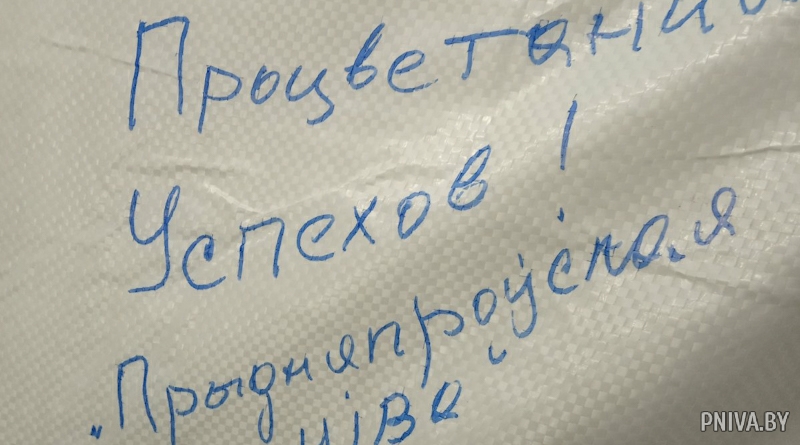 Процветания
Успехов!
„Прыдняпроўская
ніва"
PNIVA.BY